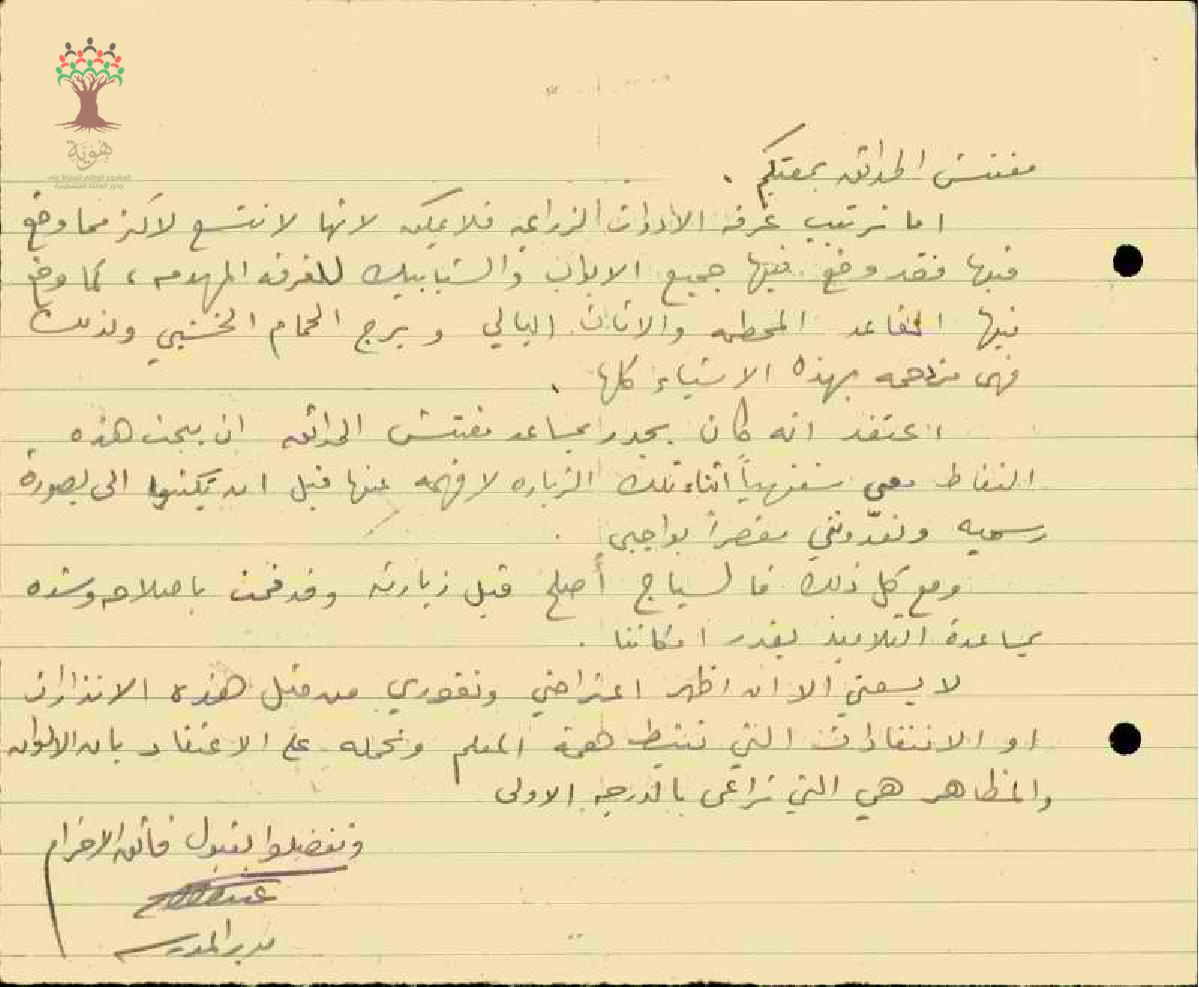 هوية
المشروع الوطني للحفاظ على
جذور العائلة الفلسطينية
مفتش الحدائق بمعيتكم .
اما ترتيب غرفة الأدوات الزراعيه فلا يمكن لانها لا تتسع لاكثر مما وضع
فيها فقد وضع فيها جميع الابواب والشبابيك للغرفه المهدمه ، كما وضع
فيها المقاعد المحطمه والاثاث البالي وبرج الحمام الخشبي ولذلك
فهي مزدحمه بهذه الاشياء كلها .
اعتقد انه كان يجدر بمساعد مفتش الحدائق ان يبحث هذه
النقاط معي شفهياً اثناء تلك الزياره لافهمه عنها قبل ان يكتبها الى بصورة
رسميه وتعدّونني مقصراً بواجبي .
ومع كل ذلك فالسياج أصلح قبل زيارته وقد قمت باصلاحه وشده
بمساعدة التلاميذ بقدر امكاننا .
لا يسعني الا ان اظهر اعتراضي ونفوري من مثل هذه الانذارات
او الانتقادات التي تثبط همة المعلم وتحمله على الاعتقاد بان الالوان
والمظاهر هي التي تراعى بالدرجه الاولى
وتفضلوا بقبول فائق الاحترام
مدير المدرسه